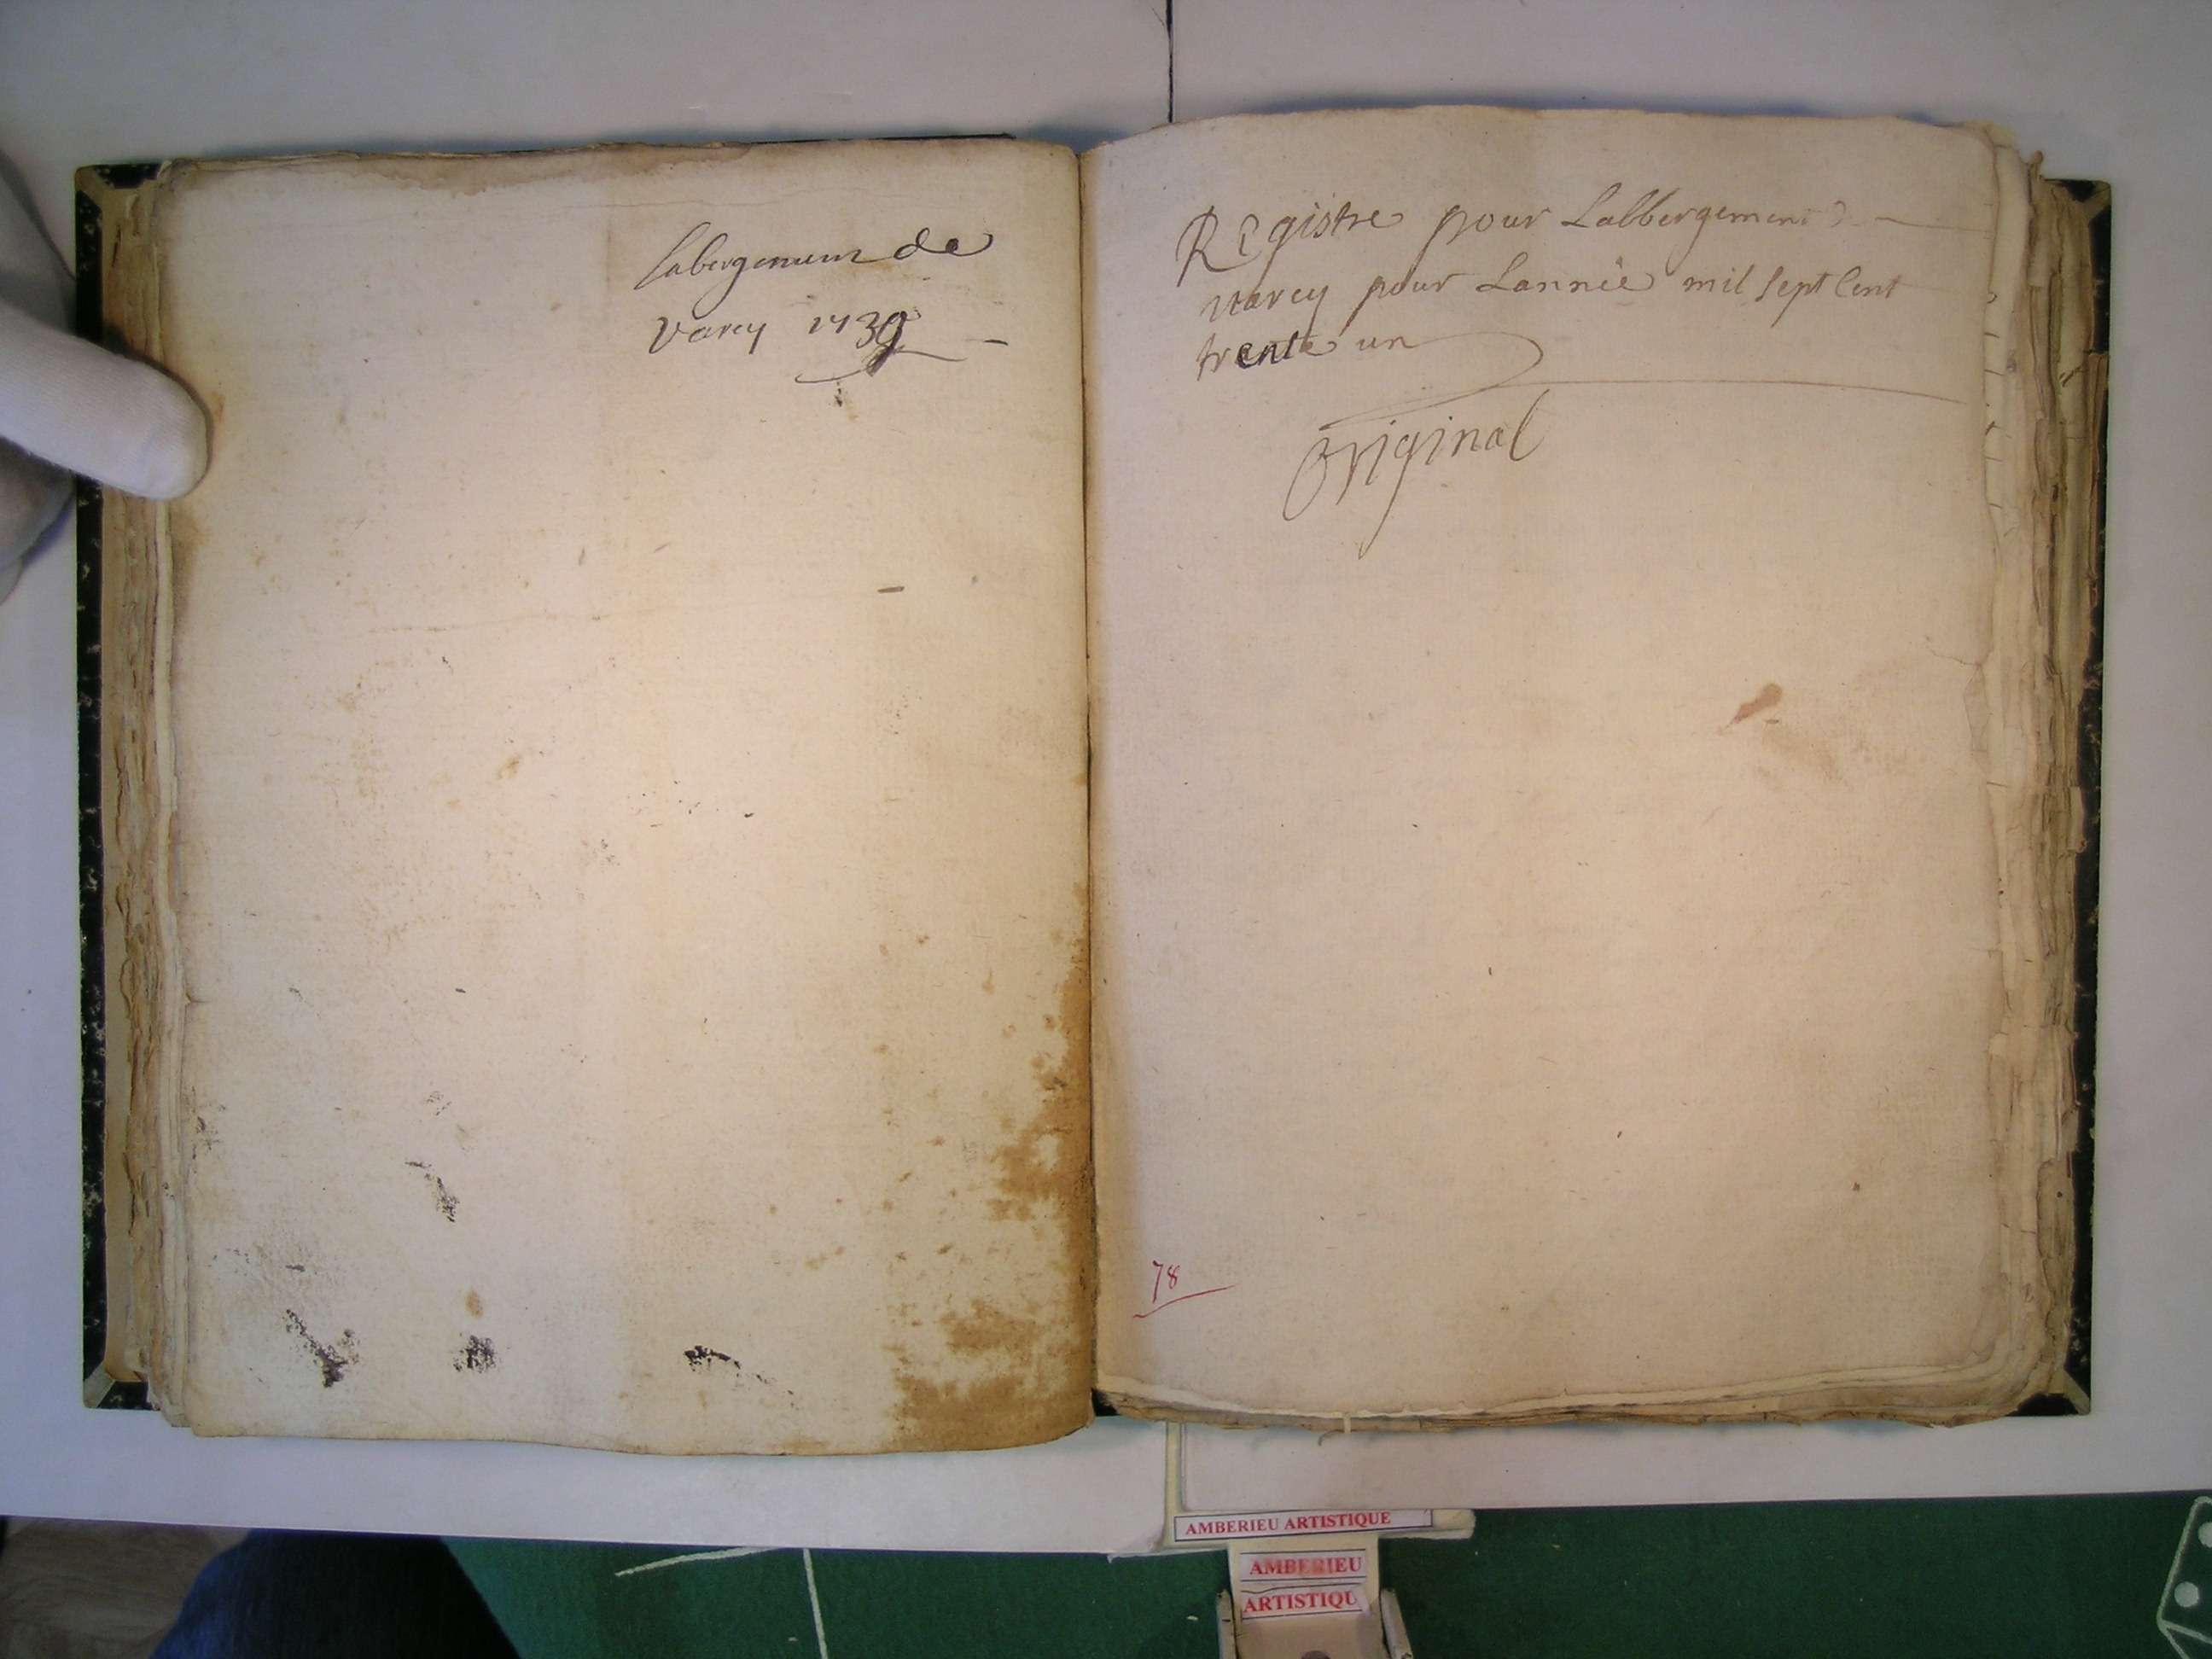 Labergement de
Varey 1730
Registre pour Lalbergement de
Varey pour Lannèe mil sept Cent
trente un
Original
78
AMBERIEU ARTISTIQUE
AMBERIEU
ARTISTIQU